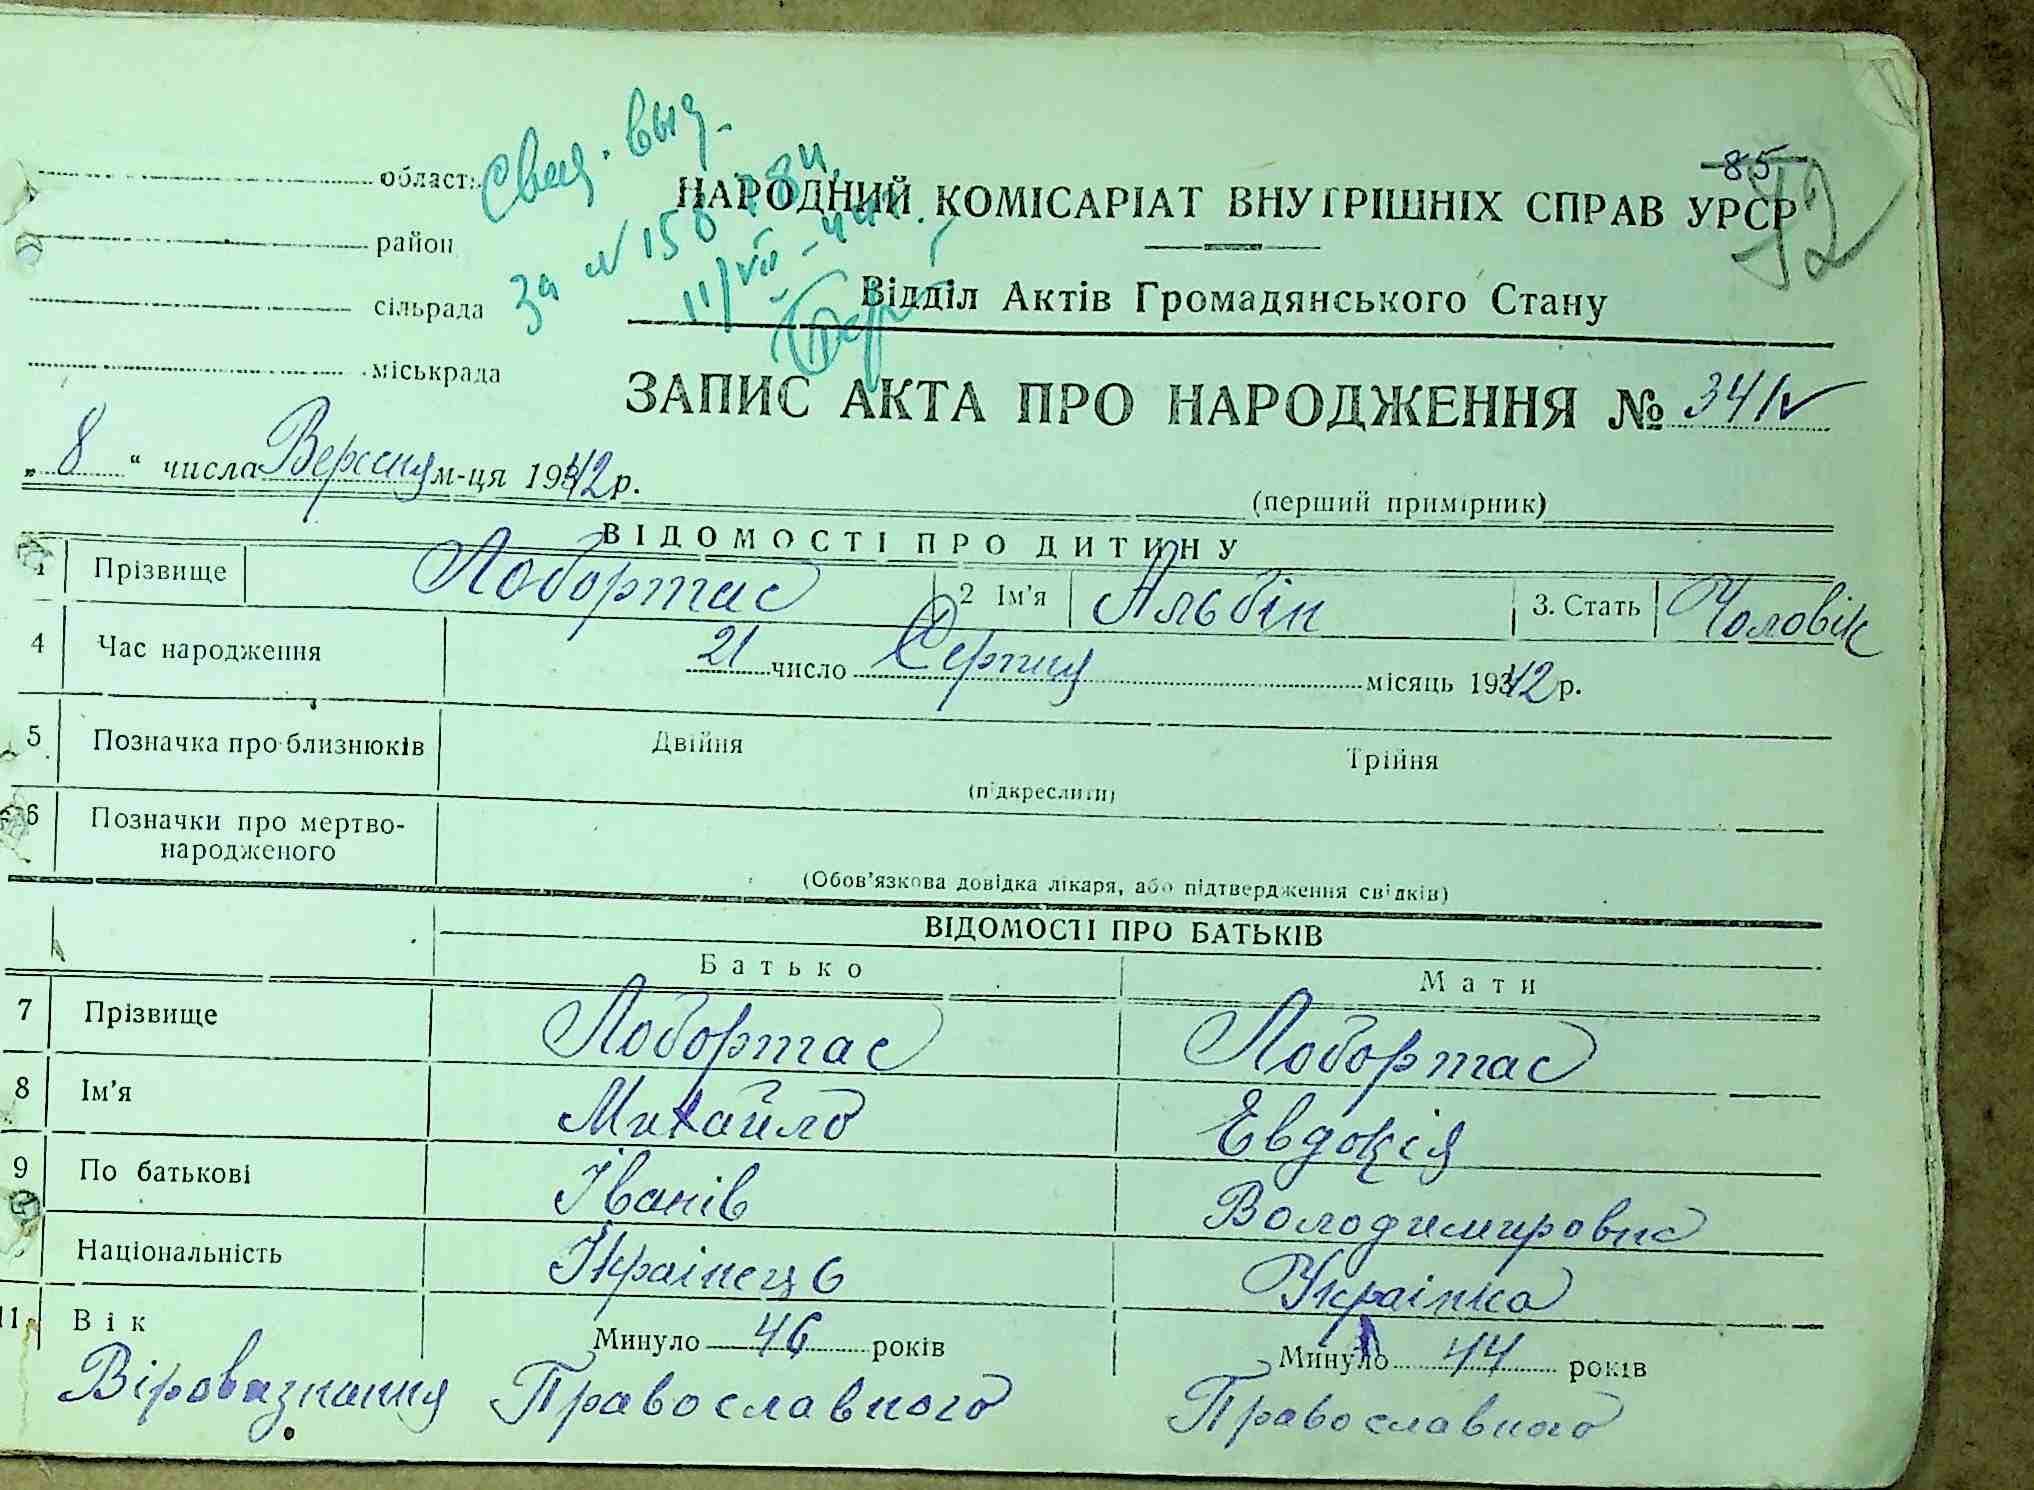 85
42
област
район
сільрада
міськрада
Свид. выд.
за №
НАРОДНИЙ КОМІСАРІАТ ВНУТРІШНІХ СПРАВ УРСР
Відділ Актів Громадянського Стану
ЗАПИС АКТА ПРО НАРОДЖЕННЯ № 341
„ 8 “ числа Вересня м-ця 1942 р.
(перший примірник)
ВІДОМОСТІ ПРО ДИТИНУ
1 Прізвище Лобортас 2 Ім’я Альбін 3. Стать Чоловік
4 Час народження 21 число Серпня місяць 1942 р.
5 Позначка про близнюків Двійня Трійня
(підкреслити)
6 Позначки про мертво-
народженого
(Обов’язкова довідка лікаря, або підтвердження свідків)
ВІДОМОСТІ ПРО БАТЬКІВ
Батько Мати
7 Прізвище Лобортас Лобортас
8 Ім’я Михайло Евдокія
9 По батькові Іванів Володимировна
Національність Українець Українка
11 Вік Минуло 46 років Минуло 44 років
Віровазнання Православного Православного